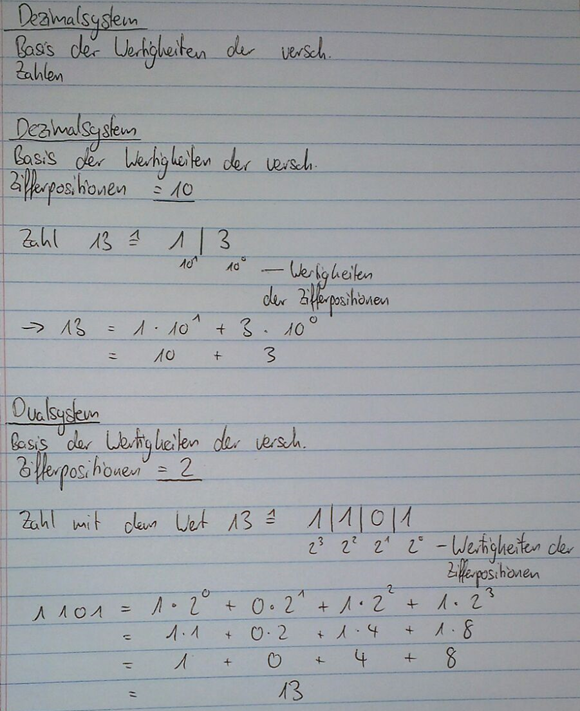 Dezimalsystem
Basis der Wertigheiten der versch.
Zahlen
Dezimalsystem
Basis der Wertigheiten der versch.
Zifferpositionen = 10
Zahl 13 ≙ 1 | 3
10¹ 10⁰ — Wertigheiten
der Zifferpositionen
→ 13 = 1 · 10¹ + 3 · 10⁰
= 10 + 3
Dualsystem
Basis der Wertigheiten der versch.
Zifferpositionen = 2
Zahl mit dem Wert 13 ≙ 1|1|0|1
2³ 2² 2¹ 2⁰ – Wertigheiten der
Zifferpositionen
1101 = 1 · 2⁰ + 0 · 2¹ + 1 · 2² + 1 · 2³
= 1·1 + 0·2 + 1·4 + 1·8
= 1 + 0 + 4 + 8
= 13